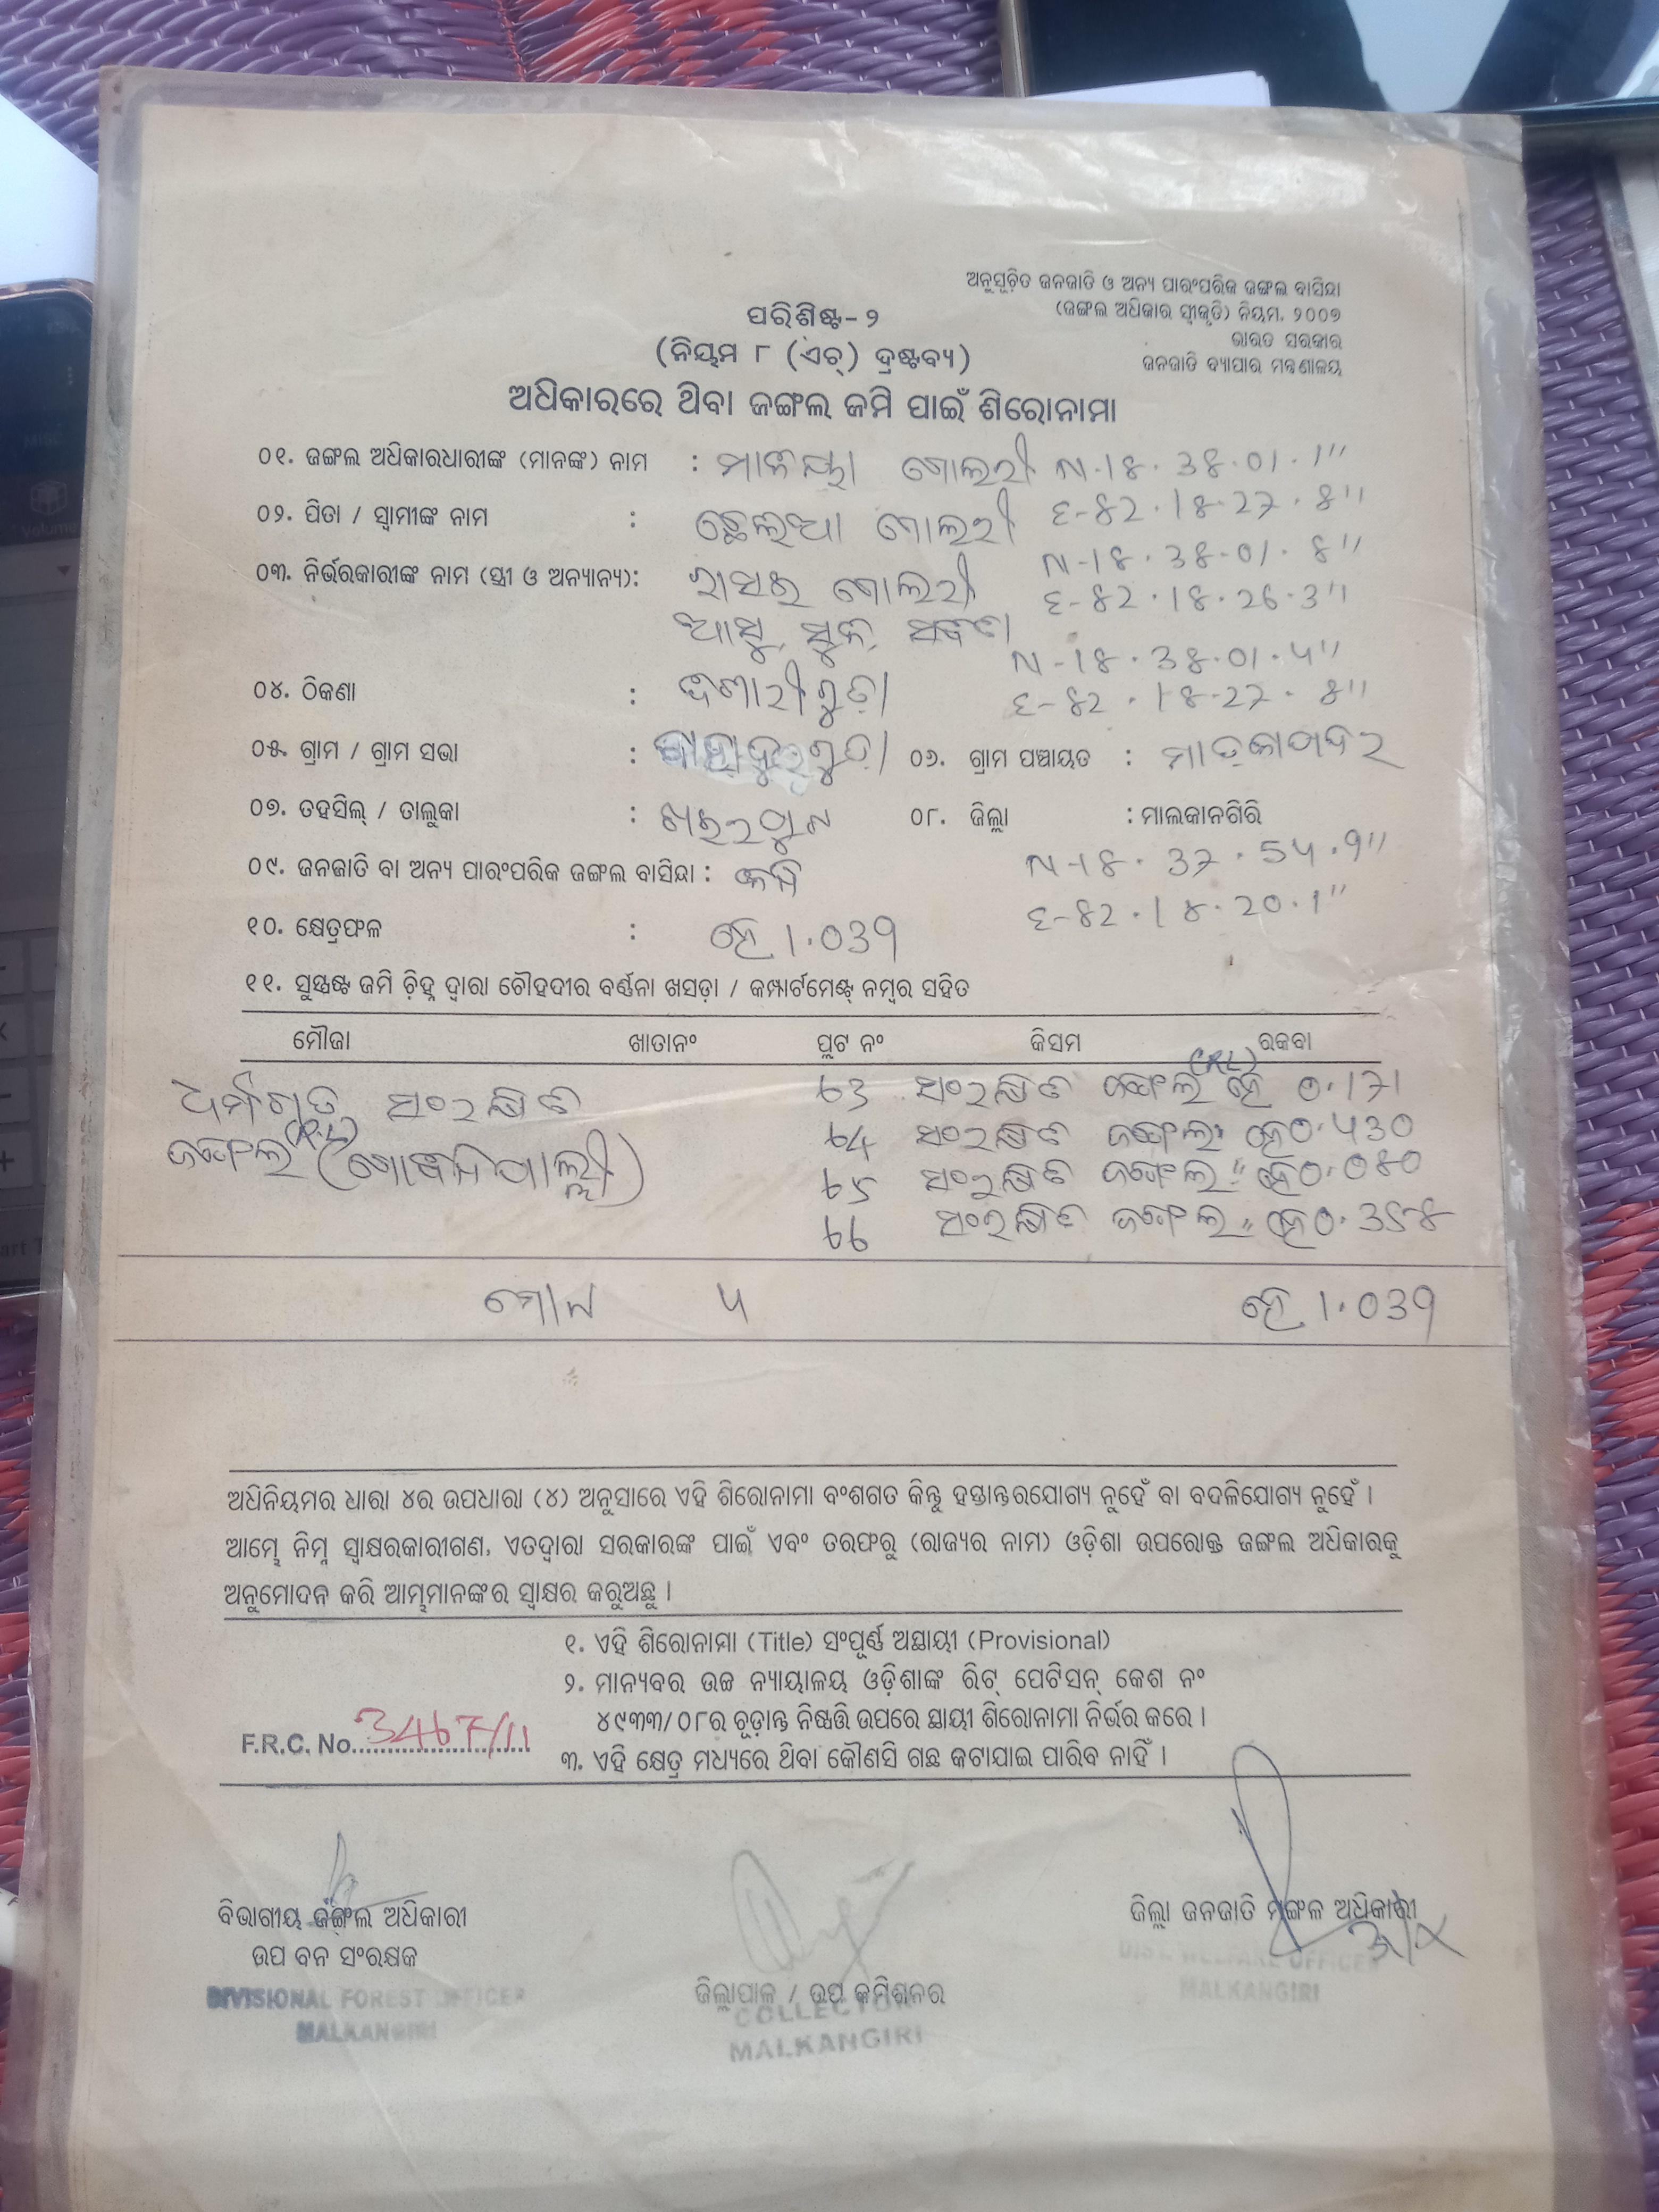 ଅନୁସୂଚିତ ଜନଜାତି ଓ ଅନ୍ୟ ପାରଂପରିକ ଜଙ୍ଗଲ ବାସିନ୍ଦା
(ଜଙ୍ଗଲ ଅଧିକାର ସ୍ୱୀକୃତି) ନିୟମ, ୨୦୦୭
ଭାରତ ସରକାର
ଜନଜାତି ବ୍ୟାପାର ମନ୍ତ୍ରଣାଳୟ
ପରିଶିଷ୍ଟ-୨
(ନିୟମ ୮ (ଏଚ୍) ଦ୍ରଷ୍ଟବ୍ୟ)
ଅଧିକାରରେ ଥିବା ଜଙ୍ଗଲ ଜମି ପାଇଁ ଶିରୋନାମା
୦୧. ଜଙ୍ଗଲ ଅଧିକାରଧାରୀଙ୍କ (ମାନଙ୍କ) ନାମ : N-18.38.01.1"
୦୨. ପିତା / ସ୍ୱାମୀଙ୍କ ନାମ : E-82.18.27.8"
N-18.38.01.8"
୦୩. ନିର୍ଭରକାରୀଙ୍କ ନାମ (ସ୍ତ୍ରୀ ଓ ଅନ୍ୟାନ୍ୟ): E-82.18.26.3"
N-18.38.01.5"
୦୪. ଠିକଣା : E-82.18.27.8"
୦୫. ଗ୍ରାମ / ଗ୍ରାମ ସଭା : ୦୬. ଗ୍ରାମ ପଞ୍ଚାୟତ :
୦୭. ତହସିଲ୍ / ତାଲୁକା : ୦୮. ଜିଲ୍ଲା : ମାଲକାନଗିରି
୦୯. ଜନଜାତି ବା ଅନ୍ୟ ପାରଂପରିକ ଜଙ୍ଗଲ ବାସିନ୍ଦା : N-18.37.54.9"
୧୦. କ୍ଷେତ୍ରଫଳ : ହେ 1.039 E-82.18.20.1"
୧୧. ସୁସ୍ପଷ୍ଟ ଜମି ଚିହ୍ନ ଦ୍ୱାରା ଚୌହଦୀର ବର୍ଣ୍ଣନା ଖସଡ଼ା / କମ୍ପାର୍ଟମେଣ୍ଟ୍ ନମ୍ବର ସହିତ
ମୌଜା ଖାତାନଂ ପ୍ଲଟ ନଂ କିସମ ରକବା
ସଂରକ୍ଷିତ 63 ସଂରକ୍ଷିତ ଜଙ୍ଗଲ ହେ 0.171
64 ସଂରକ୍ଷିତ ଜଙ୍ଗଲ ହେ 0.430
ଜଙ୍ଗଲ 65 ସଂରକ୍ଷିତ ଜଙ୍ଗଲ " ହେ 0.080
66 ସଂରକ୍ଷିତ ଜଙ୍ଗଲ " ହେ 0.358
ମୋଟ ହେ 1.039
ଅଧିନିୟମର ଧାରା ୪ର ଉପଧାରା (୪) ଅନୁସାରେ ଏହି ଶିରୋନାମା ବଂଶଗତ କିନ୍ତୁ ହସ୍ତାନ୍ତରଯୋଗ୍ୟ ନୁହେଁ ବା ବଦଳିଯୋଗ୍ୟ ନୁହେଁ ।
ଆମ୍ଭେ ନିମ୍ନ ସ୍ୱାକ୍ଷରକାରୀଗଣ, ଏତଦ୍ୱାରା ସରକାରଙ୍କ ପାଇଁ ଏବଂ ତରଫରୁ (ରାଜ୍ୟର ନାମ) ଓଡ଼ିଶା ଉପରୋକ୍ତ ଜଙ୍ଗଲ ଅଧିକାରକୁ
ଅନୁମୋଦନ କରି ଆମ୍ଭମାନଙ୍କର ସ୍ୱାକ୍ଷର କରୁଅଛୁ ।
୧. ଏହି ଶିରୋନାମା (Title) ସଂପୂର୍ଣ୍ଣ ଅସ୍ଥାୟୀ (Provisional)
୨. ମାନ୍ୟବର ଉଚ୍ଚ ନ୍ୟାୟାଳୟ ଓଡ଼ିଶାଙ୍କ ରିଟ୍ ପେଟିସନ୍ କେଶ ନଂ
୪୯୩୩/୦୮ର ଚୂଡ଼ାନ୍ତ ନିଷ୍ପତ୍ତି ଉପରେ ସ୍ଥାୟୀ ଶିରୋନାମା ନିର୍ଭର କରେ ।
F.R.C. No. 3467/11
୩. ଏହି କ୍ଷେତ୍ର ମଧ୍ୟରେ ଥିବା କୌଣସି ଗଛ କଟାଯାଇ ପାରିବ ନାହିଁ ।
ବିଭାଗୀୟ ଜଙ୍ଗଲ ଅଧିକାରୀ
ଉପ ବନ ସଂରକ୍ଷକ
DIVISIONAL FOREST OFFICER
MALKANGIRI
ଜିଲ୍ଲାପାଳ / ଉପ କମିଶନର
COLLECTOR
MALKANGIRI
ଜିଲ୍ଲା ଜନଜାତି ମଙ୍ଗଳ ଅଧିକାରୀ
DIST. WELFARE OFFICER
MALKANGIRI